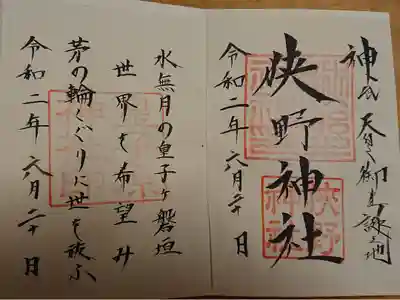 神武天皇御生誕之地
狭野神社
令和二年六月二十日
水無月の皇子ヶ磐垣
世界を希望み
茅の輪くぐりに世を祓ふ
令和二年六月二十日
狭野神社